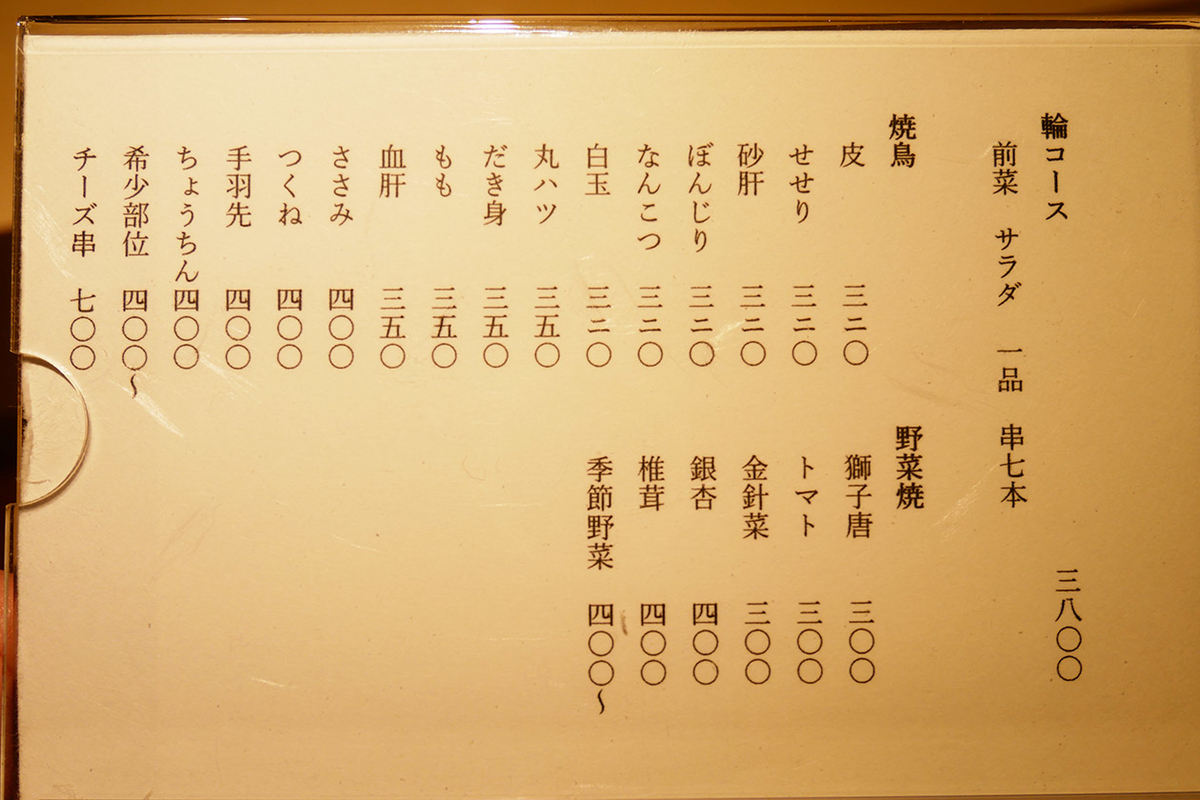 輪コース 三八〇〇
前菜 サラダ 一品 串七本
焼鳥
皮 三二〇
せせり 三二〇
砂肝 三二〇
ぼんじり 三二〇
なんこつ 三二〇
白玉 三二〇
丸ハツ 三五〇
だき身 三五〇
もも 三五〇
血肝 三五〇
ささみ 四〇〇
つくね 四〇〇
手羽先 四〇〇
ちょうちん 四〇〇
希少部位 四〇〇〜
チーズ串 七〇〇
野菜焼
獅子唐 三〇〇
トマト 三〇〇
金針菜 三〇〇
銀杏 四〇〇
椎茸 四〇〇
季節野菜 四〇〇〜